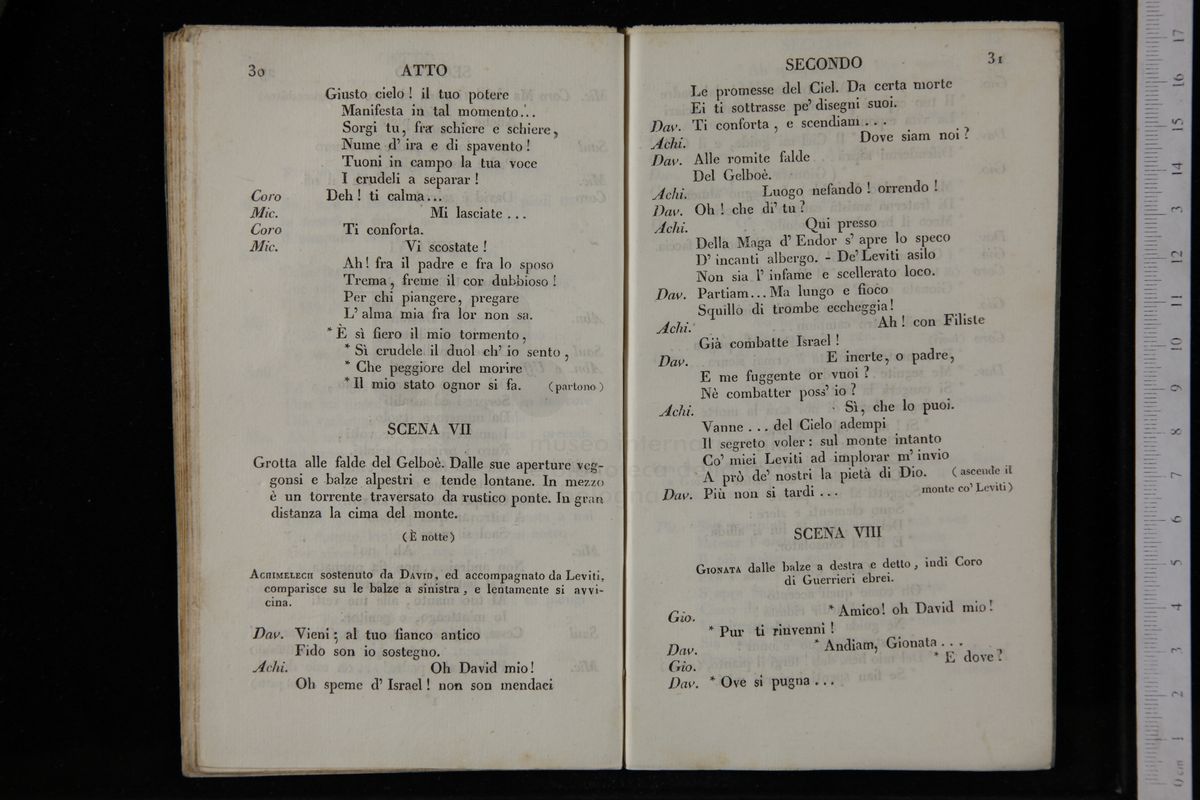 30
ATTO
Giusto cielo ! il tuo potere
Manifesta in tal momento...
Sorgi tu, fra schiere e schiere,
Nume d' ira e di spavento !
Tuoni in campo la tua voce
I crudeli a separar !
Coro Deh ! ti calma...
Mic. Mi lasciate ...
Coro Ti conforta.
Mic. Vi scostate !
Ah ! fra il padre e fra lo sposo
Trema, freme il cor dubbioso !
Per chi piangere, pregare
L' alma mia fra lor non sa.
* È sì fiero il mio tormento,
* Sì crudele il duol ch' io sento,
* Che peggiore del morire
* Il mio stato ognor si fa. (partono)
SCENA VII
Grotta alle falde del Gelboè. Dalle sue aperture veg-
gonsi e balze alpestri e tende lontane. In mezzo
è un torrente traversato da rustico ponte. In gran
distanza la cima del monte.
(È notte)
ACHIMELECH sostenuto da DAVID, ed accompagnato da Leviti,
comparisce su le balze a sinistra, e lentamente si avvi-
cina.
Dav. Vieni; al tuo fianco antico
Fido son io sostegno.
Achi. Oh David mio !
Oh speme d' Israel ! non son mendaci
SECONDO
31
Le promesse del Ciel. Da certa morte
Ei ti sottrasse pe' disegni suoi.
Dav. Ti conforta, e scendiam ...
Achi. Dove siam noi ?
Dav. Alle romite falde
Del Gelboè.
Achi. Luogo nefando ! orrendo !
Dav. Oh ! che di' tu ?
Achi. Qui presso
Della Maga d' Endor s' apre lo speco
D' incanti albergo. - De' Leviti asilo
Non sia l' infame e scellerato loco.
Dav. Partiam... Ma lungo e fioco
Squillo di trombe eccheggia !
Achi. Ah ! con Filiste
Già combatte Israel !
Dav. E inerte, o padre,
E me fuggente or vuoi ?
Nè combatter poss' io ?
Achi. Sì, che lo puoi.
Vanne ... del Cielo adempi
Il segreto voler : sul monte intanto
Co' miei Leviti ad implorar m' invio
A prò de' nostri la pietà di Dio. (ascende il
Dav. Più non si tardi ... monte co' Leviti)
SCENA VIII
GIONATA dalle balze a destra e detto, indi Coro
di Guerrieri ebrei.
Gio. * Amico ! oh David mio !
* Pur ti rinvenni !
Dav. * Andiam, Gionata ...
Gio. * E dove ?
Dav. * Ove si pugna ...